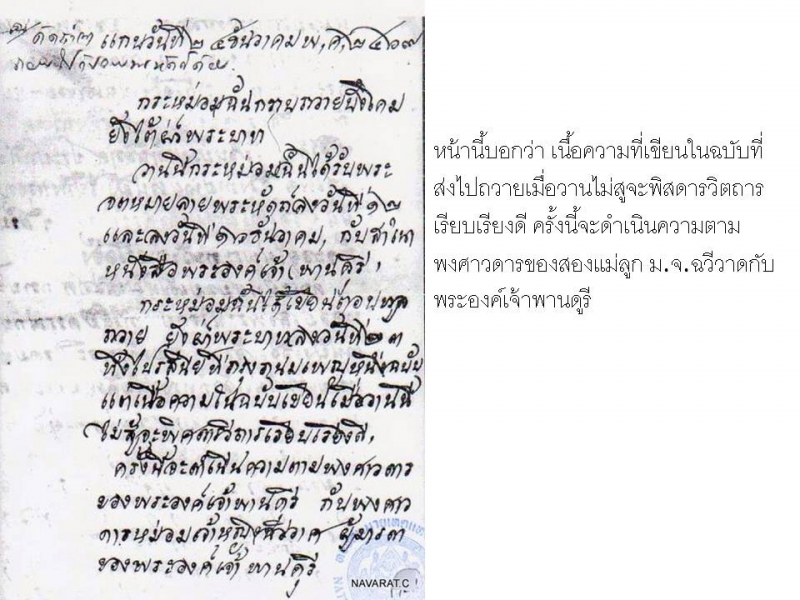 แกนวันที่ ๒๔ ธันวาคม พ,ศ,๒๔๖๗
กระหม่อมฉันกราบถวายบังคม
ยังใต้ฝ่าพระบาท
วานนี้กระหม่อมฉันได้รับพระ
จดหมายลายพระหัตถ์ลงวันที่ ๑๒
และลงวันที่ ๑๓ ธันวาคม, กับสำเนา
หนังสือพระองค์เจ้า
กระหม่อมฉันได้เขียนตอบทูล
ถวาย ยังฝ่าพระบาทลงวันที่ ๒๓
ทิ้งไปรสนีย์ที่กรุงภนมเพญหนึ่งฉบับ
แต่เนื้อความในฉบับเขียนเมื่อวานนี้
ไม่สู้จะพิศดารวิถารเรียบเรียงดี,
ครั้งนี้จะดำเนินความตามพงศาวดาร
ของพระองค์เจ้าพานดุรี กับพงศาว
ดารหม่อมเจ้าหญิงฉวีวาศ ผู้มารดา
ของพระองค์เจ้าพานดุรี
NAVARAT.C
หน้านี้บอกว่า เนื้อความที่เขียนในฉบับที่
ส่งไปถวายเมื่อวานไม่สูจะพิสดารวิตถาร
เรียบเรียงดี ครั้งนี้จะดำเนินความตาม
พงศาวดารของสองแม่ลูก ม.จ.ฉวีวาดกับ
พระองค์เจ้าพานดูรี